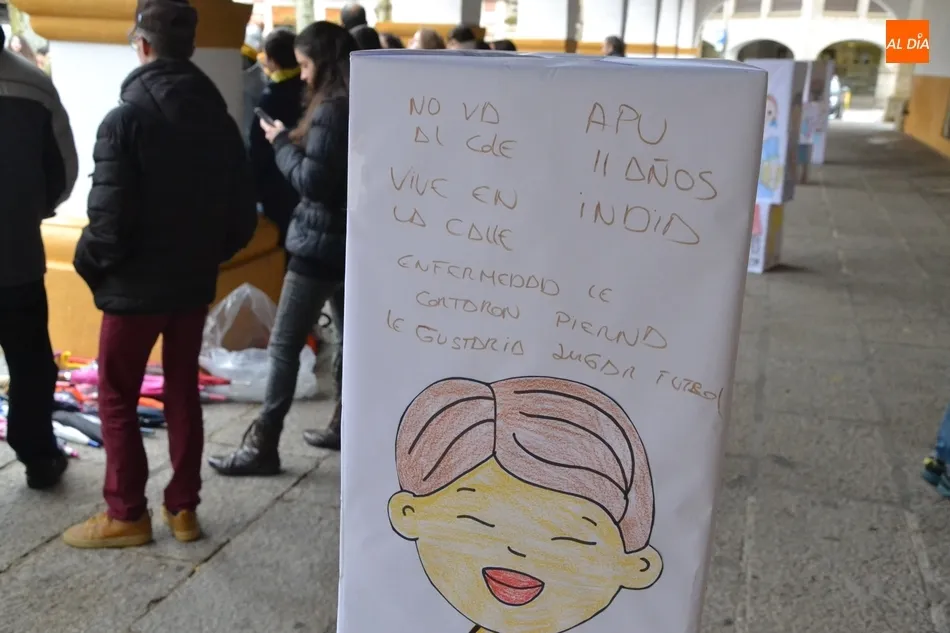 AL DÍA
NO VA
AL COLE
VIVE EN
LA CALLE
APU
11 AÑOS
INDIA
ENFERMEDAD LE
CORTARON PIERNA
LE GUSTARIA JUGAR FUTBOL